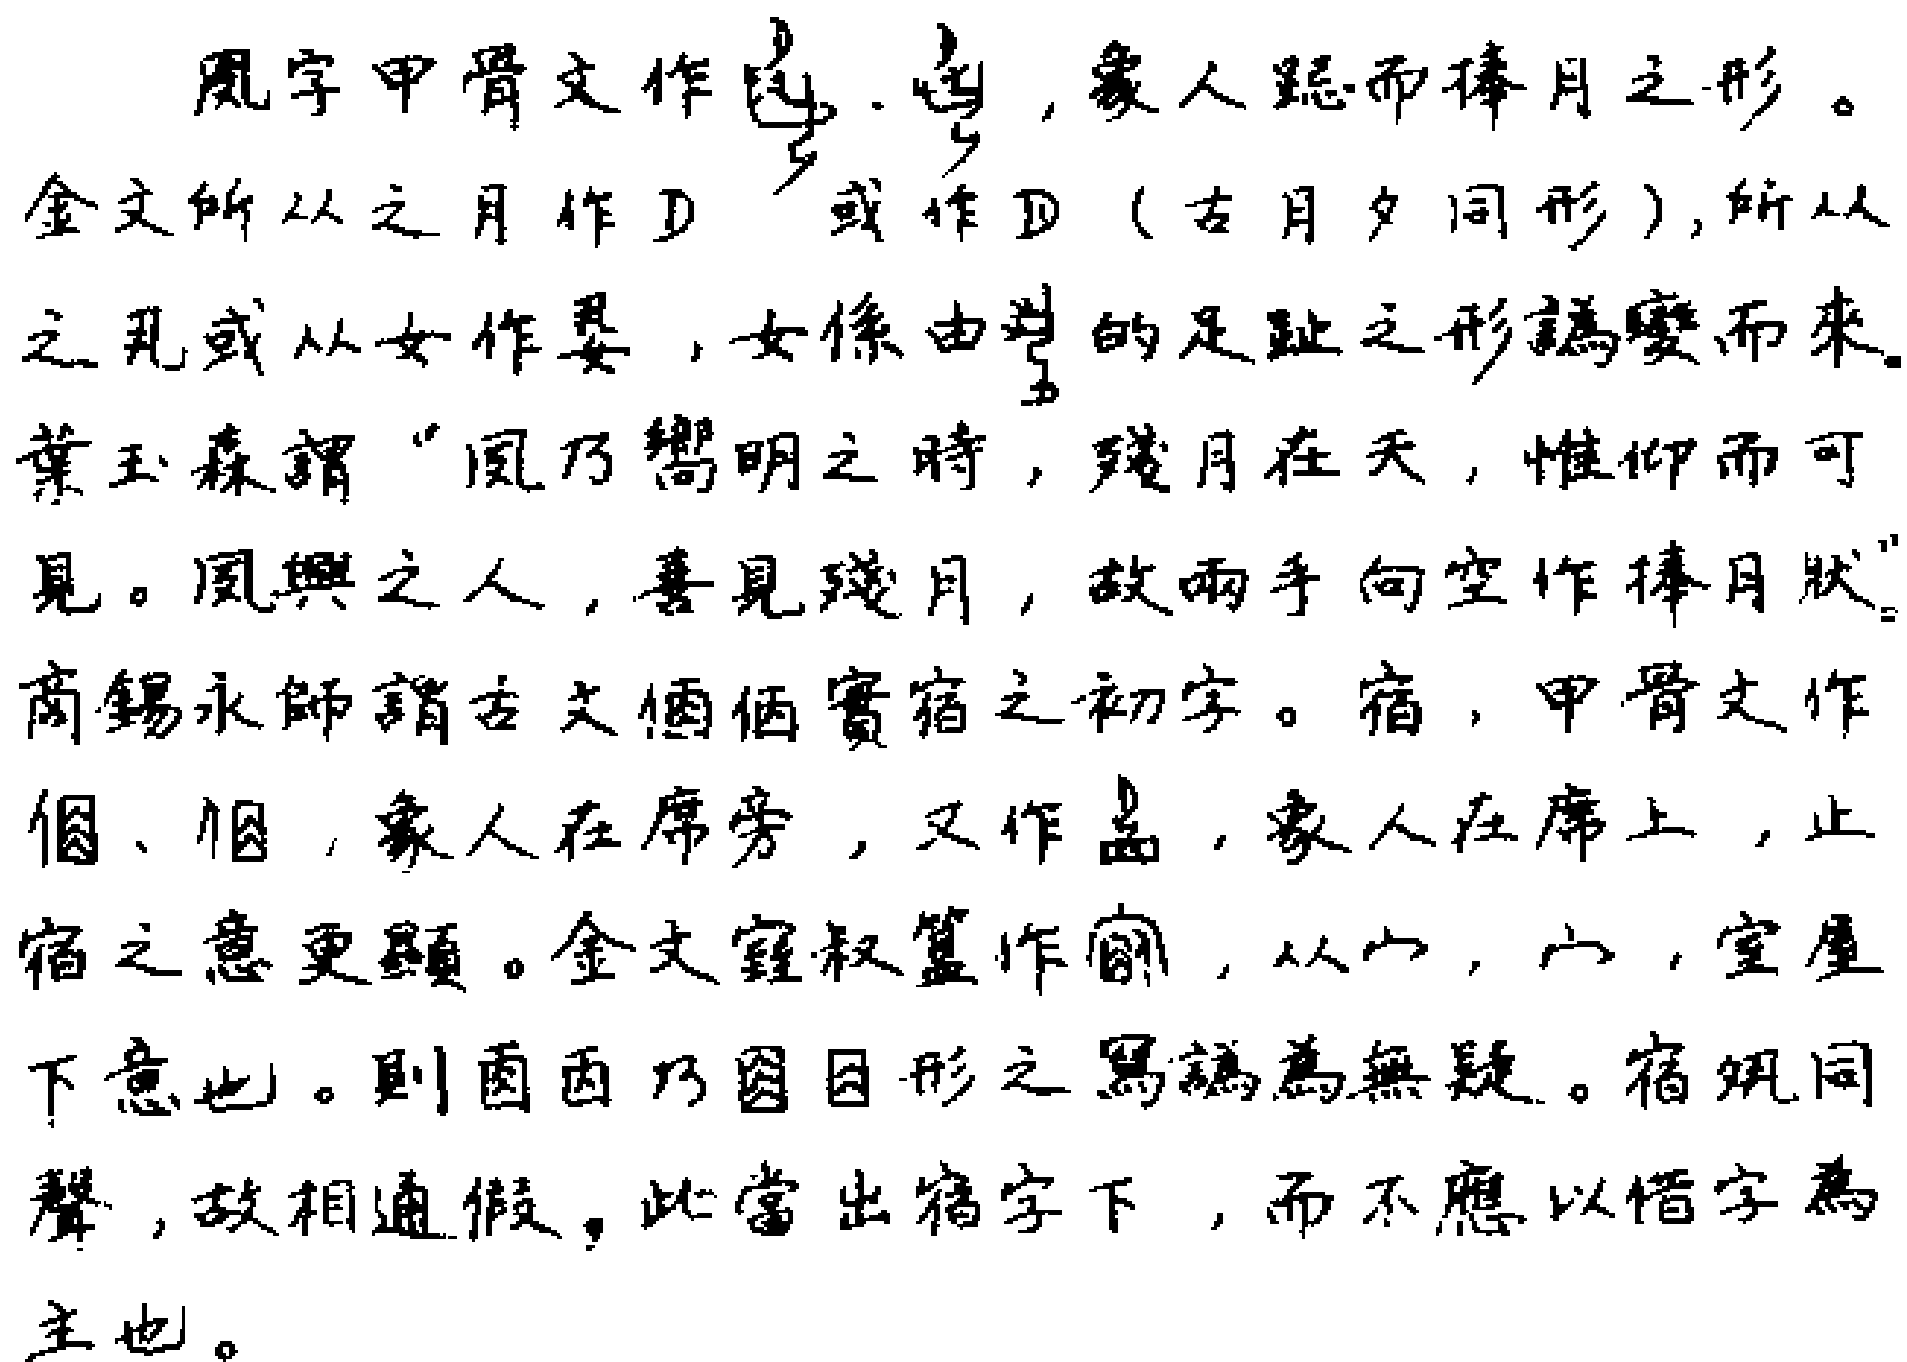 夙字甲骨文作、，象人跽而捧月之形。
金文所从之月作D 或作D（古月夕同形），所从
之丮或从女作，女係由的足趾之形譌變而來。
葉玉森謂“夙乃嚮明之時，殘月在天，惟仰而可
見。夙興之人，喜見殘月，故兩手向空作捧月狀”。
商錫永師謂古文㑉㐁實宿之初字。宿，甲骨文作
、，象人在席旁，又作，象人在席上，止
宿之意更顯。金文窒叔簋作，从宀，宀，室屋
下意也。則㐁西乃形之寫譌為無疑。宿夙同
聲，故相通假，此當出宿字下，而不應以借字為
主也。